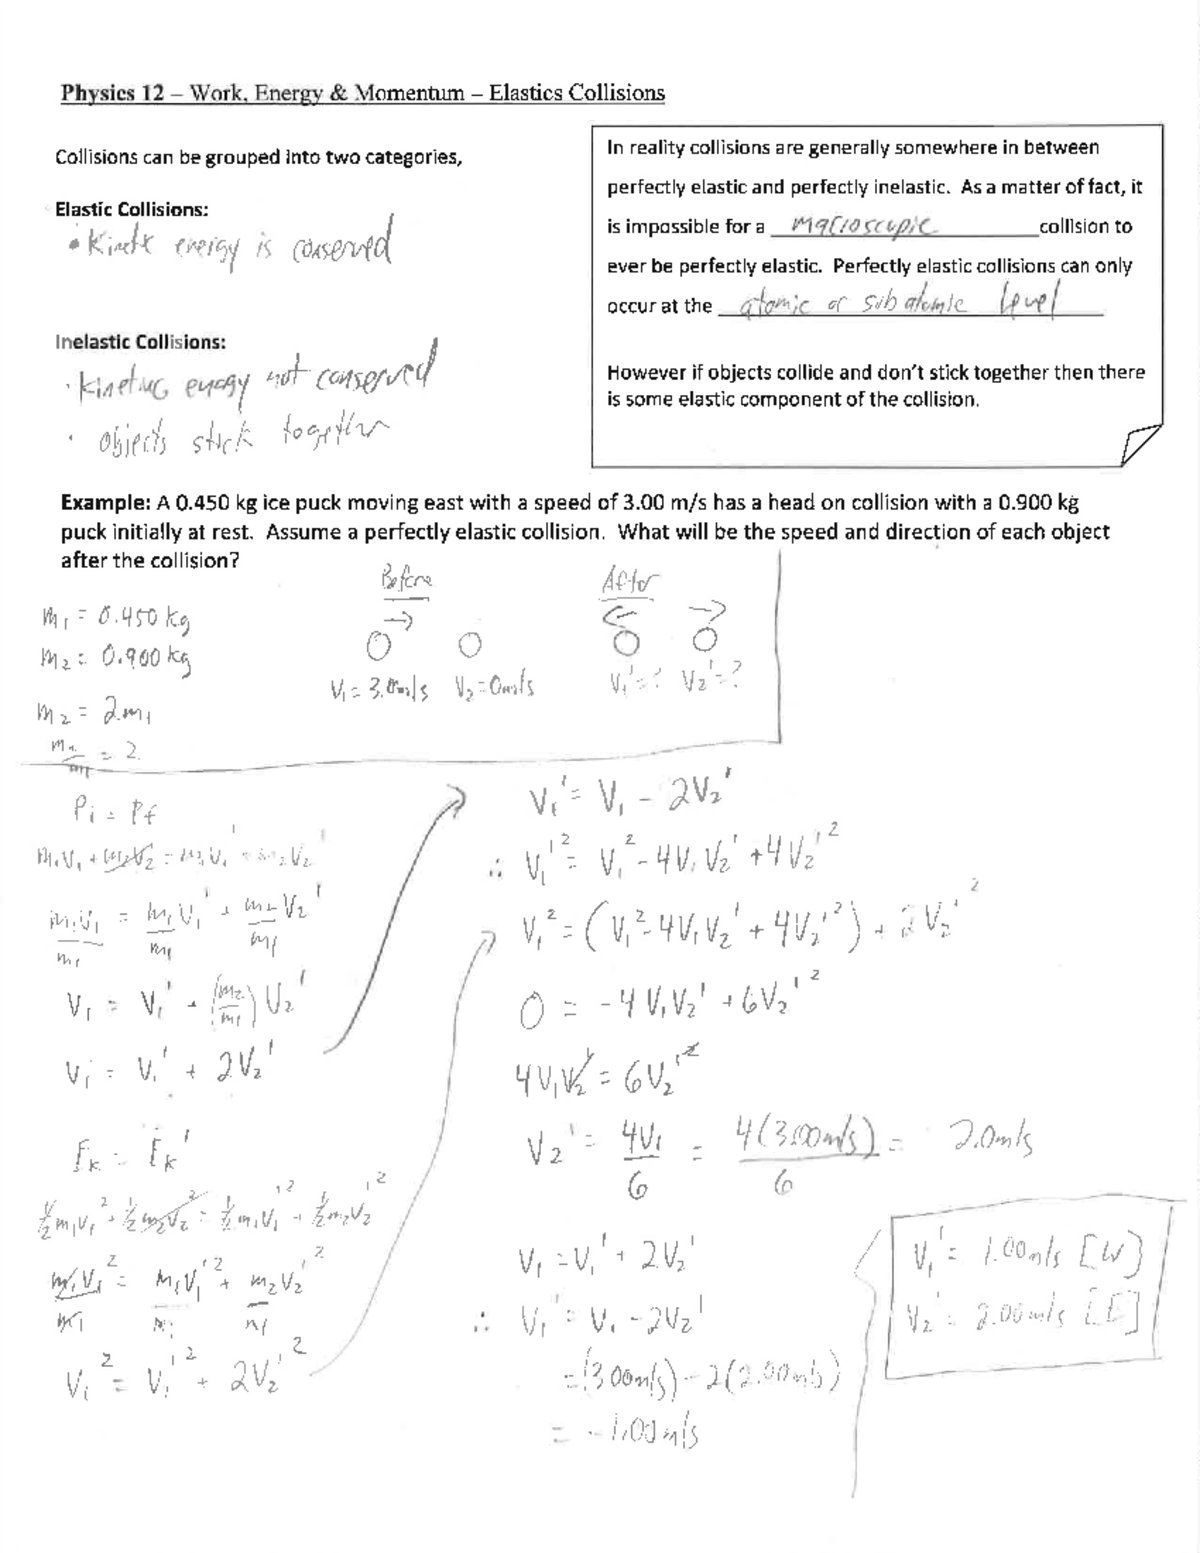 Physics 12 – Work, Energy & Momentum – Elastics Collisions
Collisions can be grouped into two categories,
Elastic Collisions:
• Kinetic energy is conserved
Inelastic Collisions:
• Kinetic energy not conserved
• Objects stick together
In reality collisions are generally somewhere in between
perfectly elastic and perfectly inelastic. As a matter of fact, it
is impossible for a macroscopic collision to
ever be perfectly elastic. Perfectly elastic collisions can only
occur at the atomic or subatomic level
However if objects collide and don't stick together then there
is some elastic component of the collision.
Example: A 0.450 kg ice puck moving east with a speed of 3.00 m/s has a head on collision with a 0.900 kg
puck initially at rest. Assume a perfectly elastic collision. What will be the speed and direction of each object
after the collision?
Before
After
V₁ = 3.0m/s V₂ = 0m/s
V₁' = ? V₂' = ?
m₁ = 0.450 kg
m₂ = 0.900 kg
m₂ = 2m₁
m₂/m₁ = 2
Pi = Pf
m₁V₁ + m₂V₂ = m₁V₁' + m₂V₂'
m₁V₁/m₁ = m₁V₁'/m₁ + m₂V₂'/m₁
V₁ = V₁' + (m₂/m₁) V₂'
V₁ = V₁' + 2V₂'
Ek = Ek'
½m₁V₁² + ½m₂V₂² = ½m₁V₁'² + ½m₂V₂'²
m₁V₁²/m₁ = m₁V₁'²/m₁ + m₂V₂'²/m₁
V₁² = V₁'² + 2V₂'²
V₁' = V₁ - 2V₂'
∴ V₁'² = V₁² - 4V₁V₂' + 4V₂'²
V₁² = (V₁² - 4V₁V₂' + 4V₂'²) + 2V₂'²
0 = -4V₁V₂' + 6V₂'²
4V₁V₂' = 6V₂'²
V₂' = 4V₁/6 = 4(3.00m/s)/6 = 2.0m/s
V₁ = V₁' + 2V₂'
∴ V₁' = V₁ - 2V₂'
= (3.00m/s) - 2(2.00m/s)
= -1.00m/s
V₁' = 1.00m/s [W]
V₂' = 2.00m/s [E]